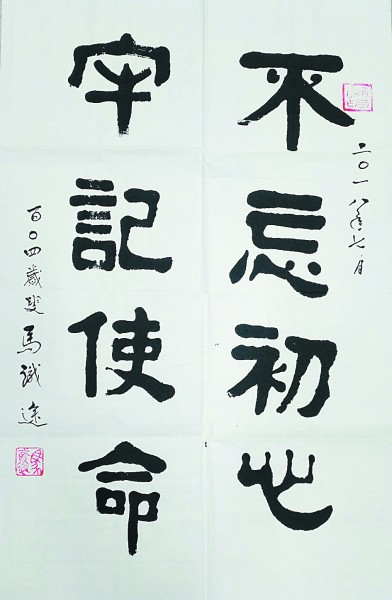 不忘初心
二〇一八年七月
牢記使命
百〇四歲叟馬識途